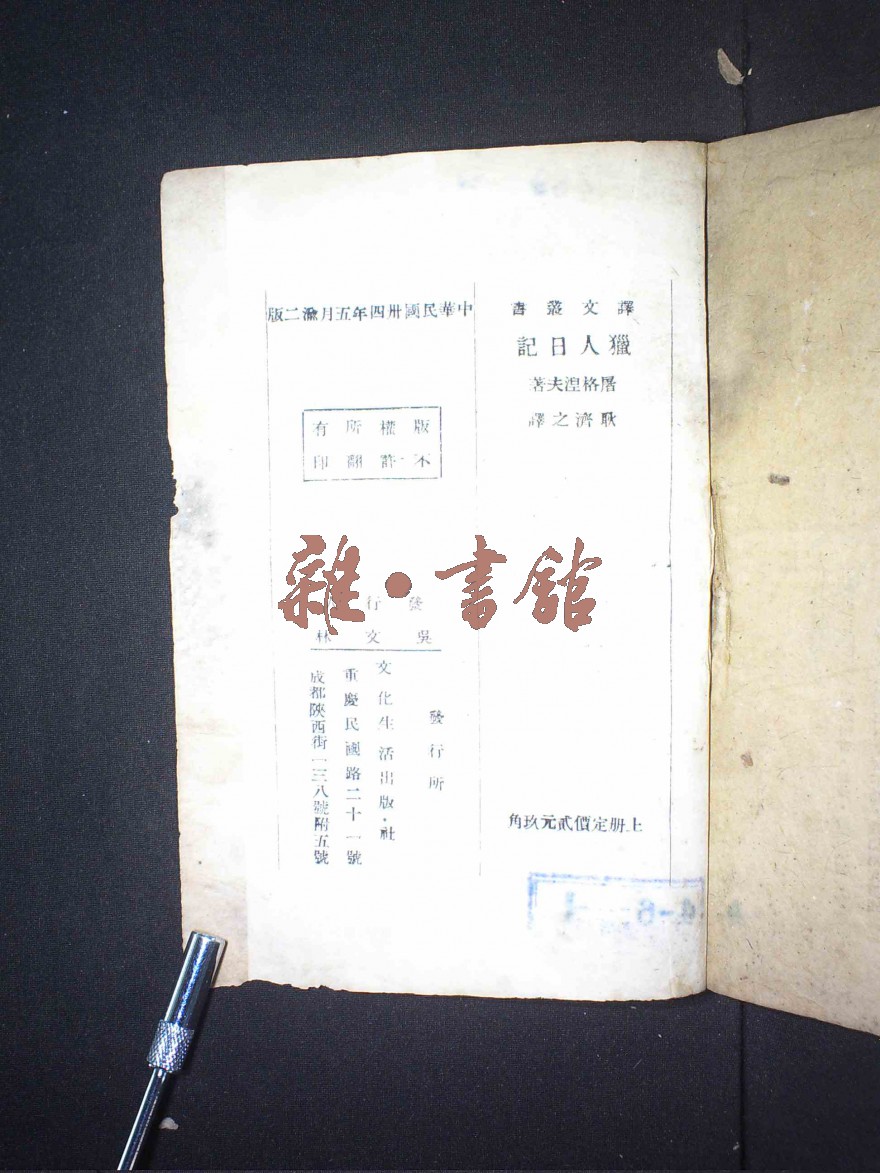 譯文叢書
獵人日記
屠格湼夫著
耿濟之譯
上册定價貳元玖角
中華民國卅四年五月渝二版
版權所有
不許翻印
發行
吳文林
發行所
文化生活出版社
重慶民國路二十一號
成都陝西街一三八號附五號
雜·書館